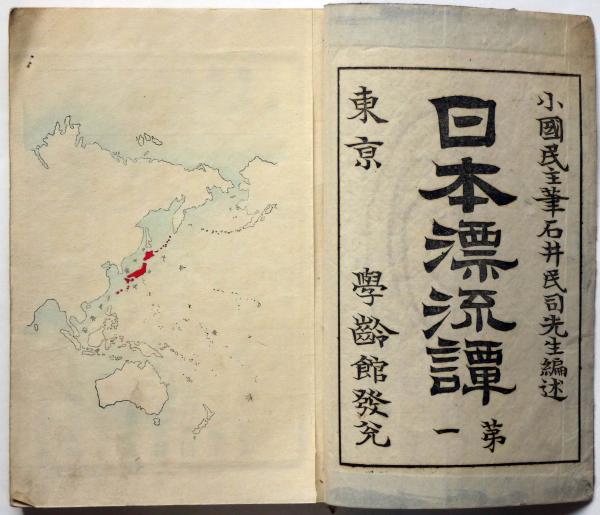 小國民主筆石井民司先生編述
日本漂流譚
第一
東京
學齡館發兌